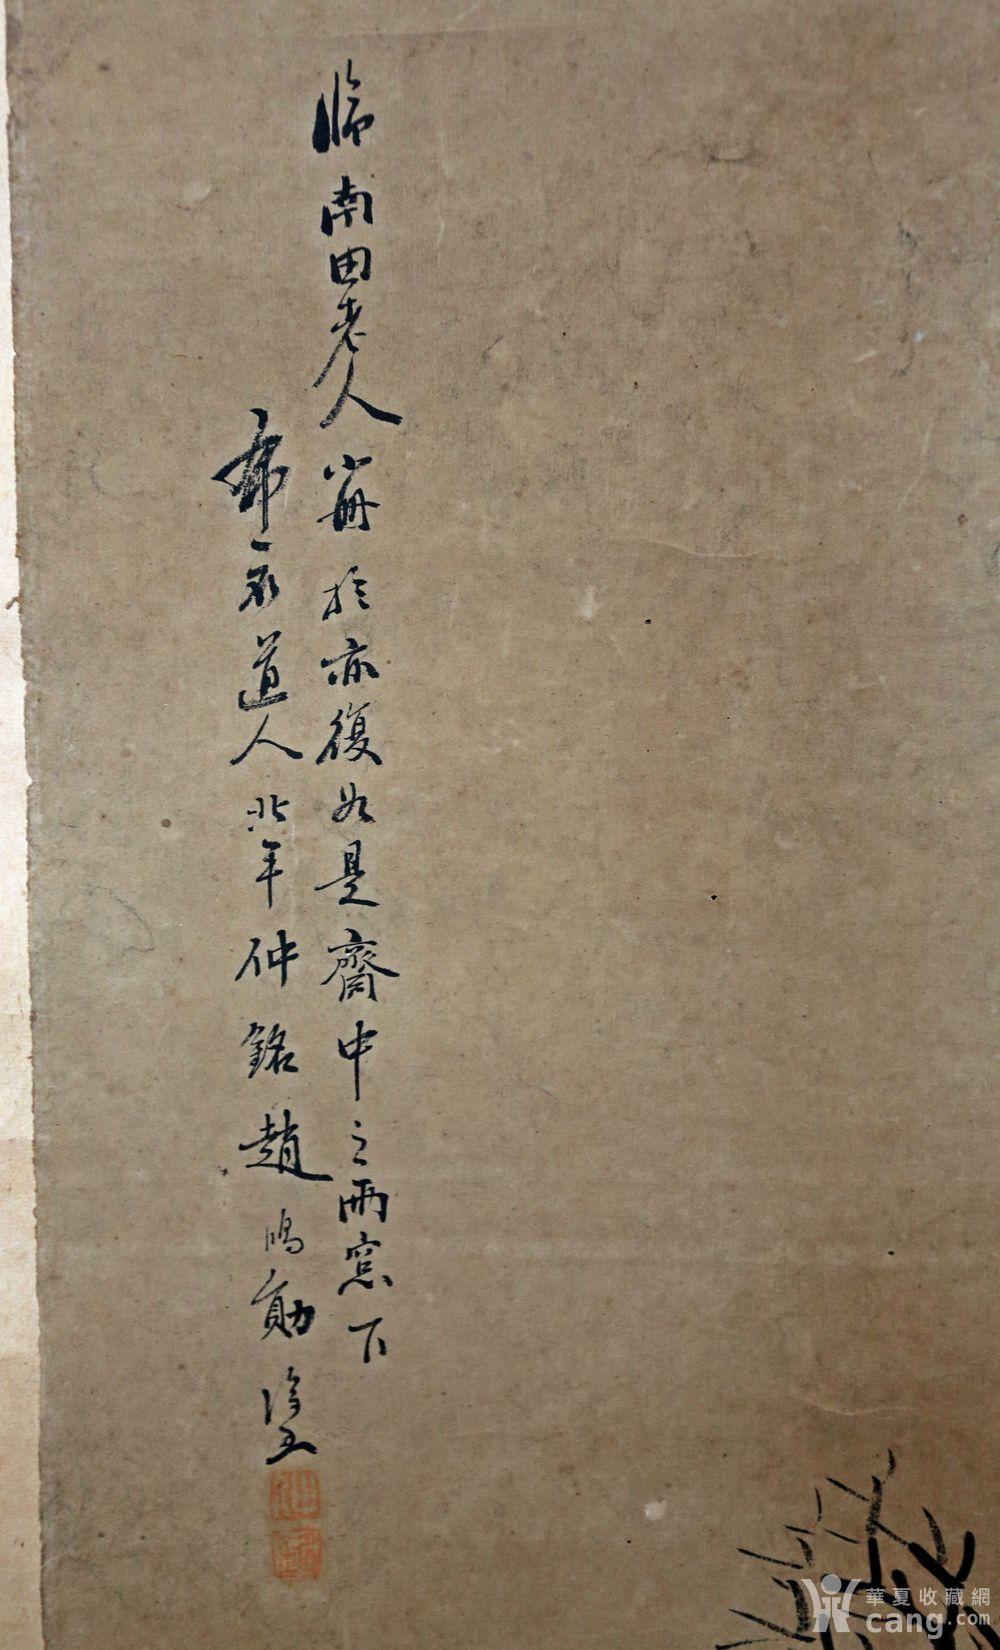 臨南田老人小冊於亦復如是齋中之雨窓下
布衣道人北年仲銘趙鳴勛塗
華夏收藏網
cang.com